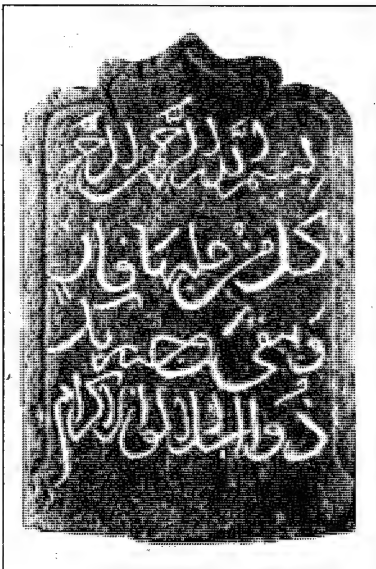 بسم الله الرحمن الرحيم
كل من عليها فان
ويبقى وجه ربك
ذوالجلال والاكرام